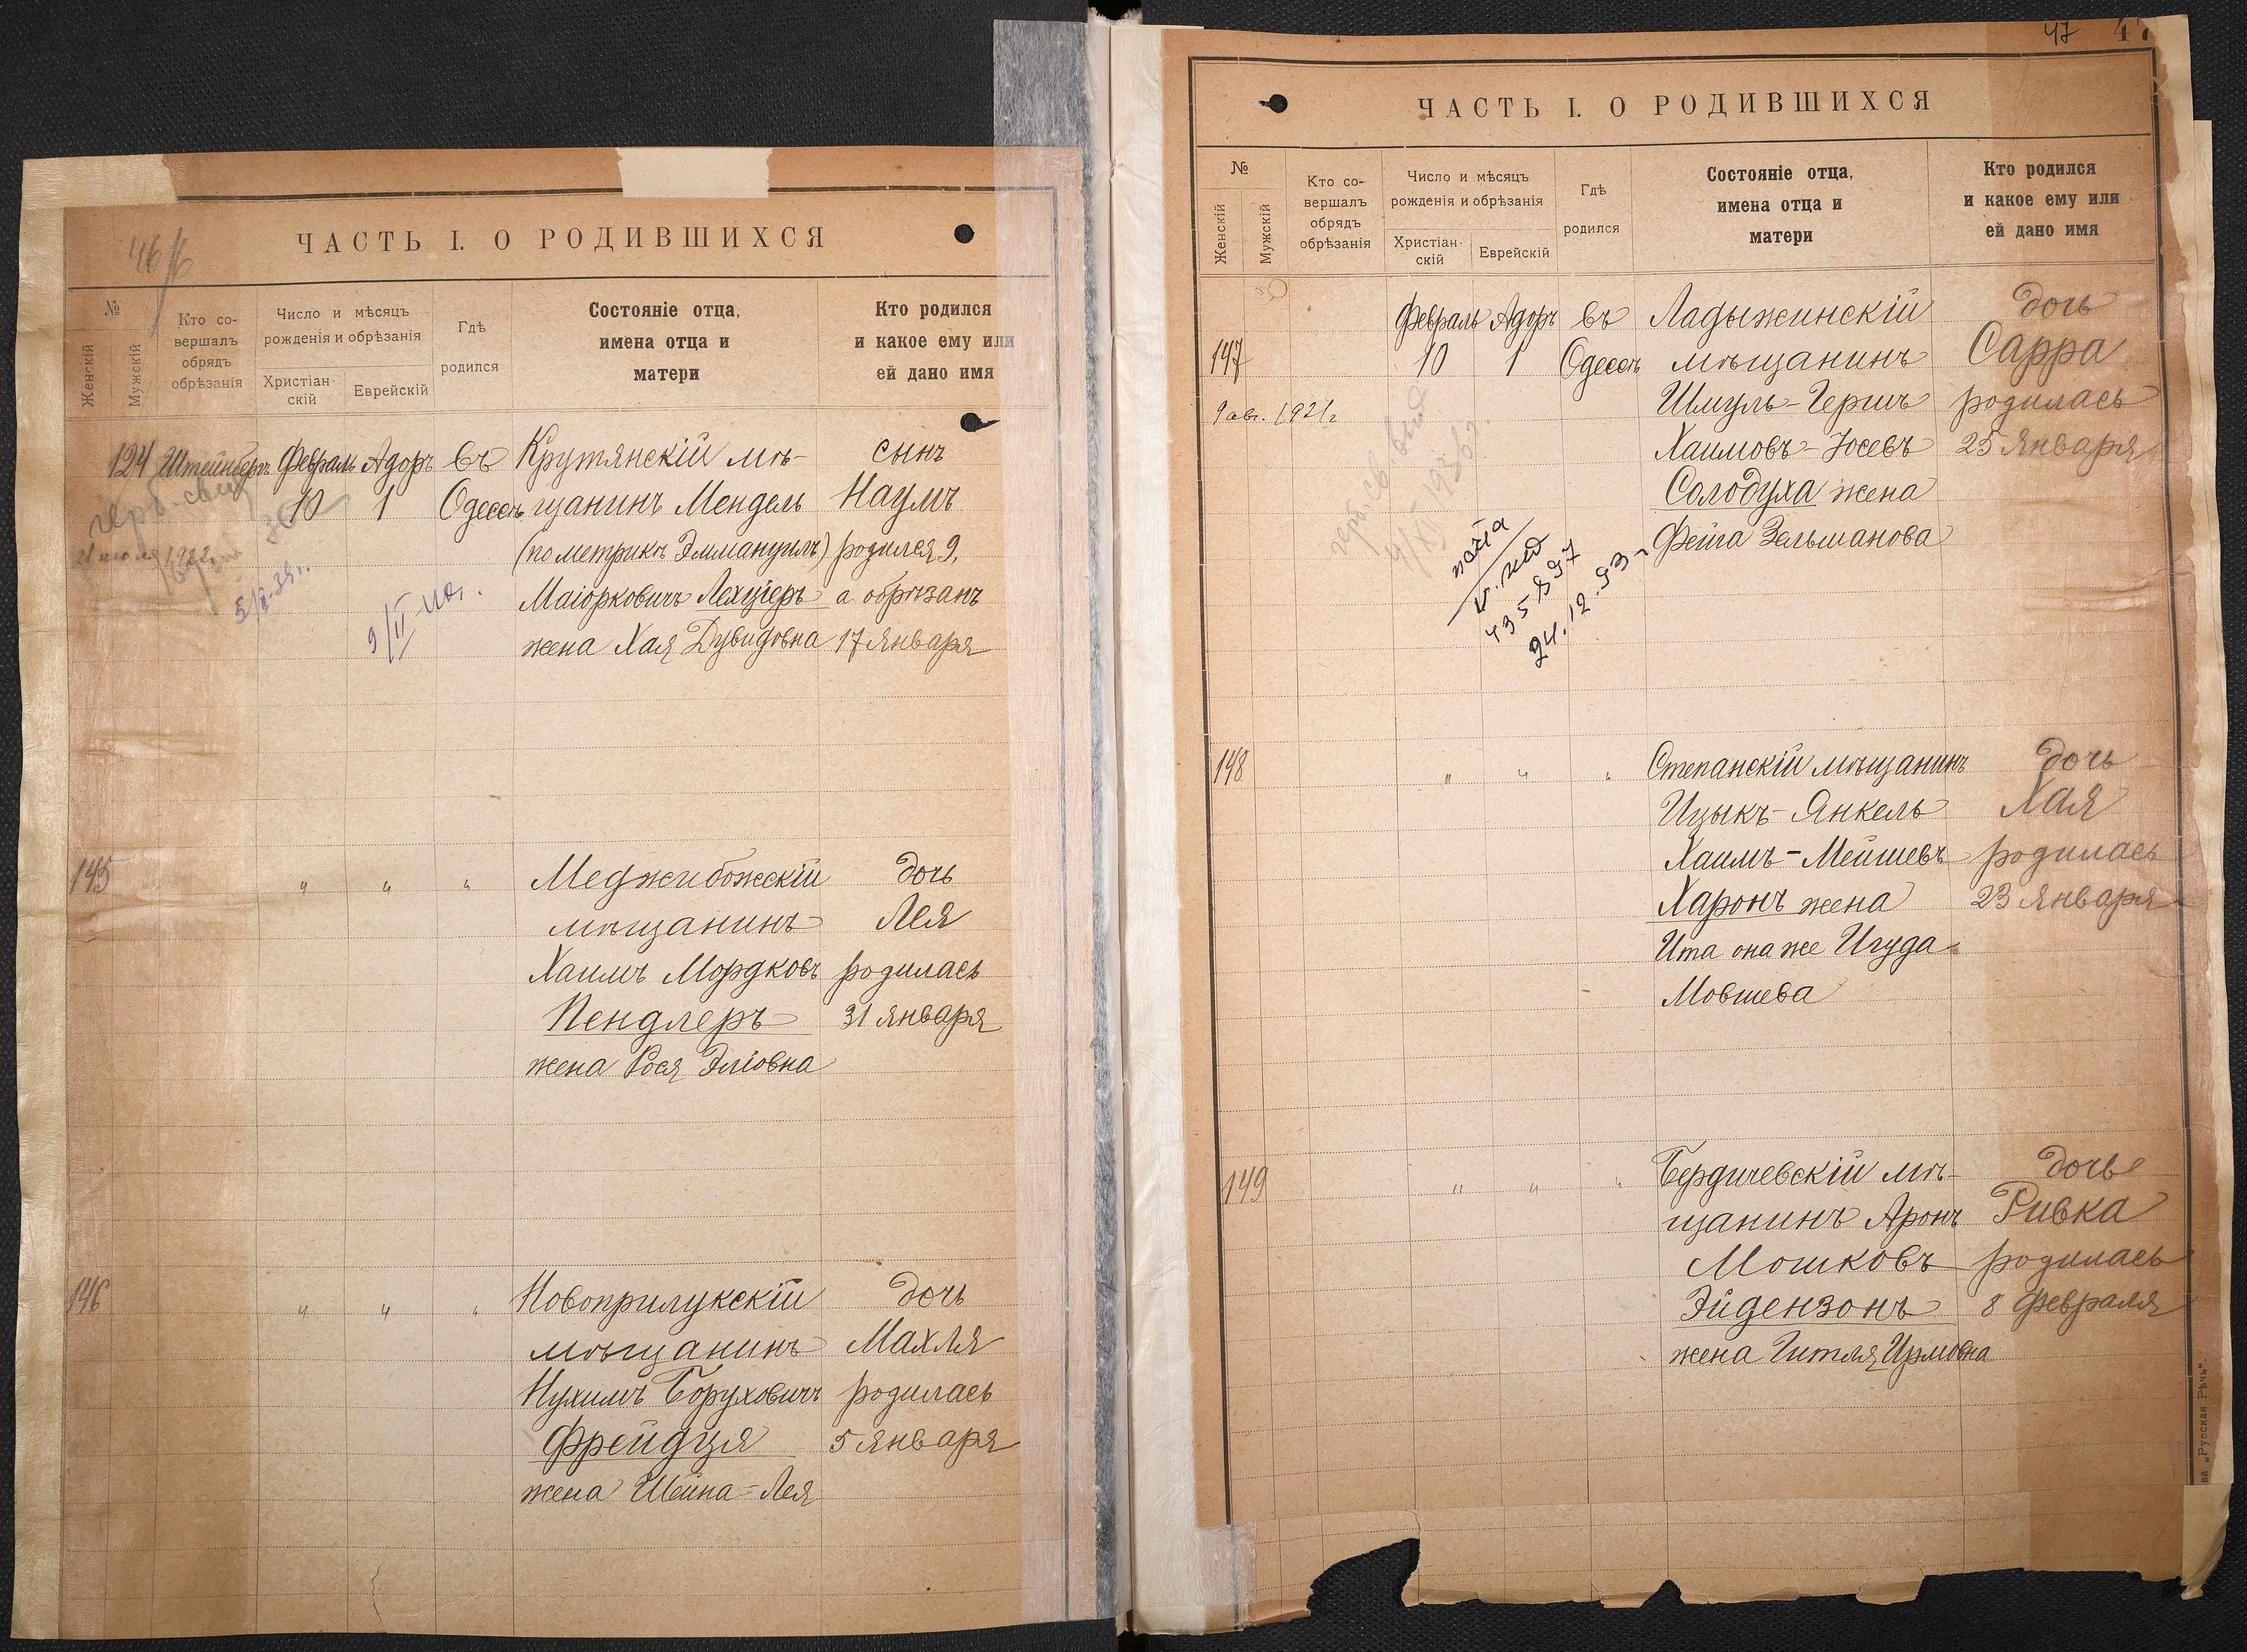 46
ЧАСТЬ I. О РОДИВШИХСЯ
№
Женскій
Мужскій
Кто со-
вершалъ
обрядъ
обрѣзанія
Число и мѣсяцъ
рожденія и обрѣзанія
Христіан-
скій
Еврейскій
Гдѣ
родился
Состояніе отца,
имена отца и
матери
Кто родился
и какое ему или
ей дано имя
124 Штейнберъ Февраль Адоръ въ Крутянскій мѣ- сынъ
10 1 Одессѣ щанинъ Мендель Наумъ
(по метрикѣ Эммануилъ) родился 9,
Маіорковичъ Лехціеръ а обрѣзанъ
жена Хая Дувидовна 17 Января
5/X-39г.
9/II-40г.
145 " " " Меджибожскій дочь
мѣщанинъ Лея
Хаимъ Мордковъ родилась
Пендлеръ 31 января
жена Рося Эліовна
146 " " " Новоприлукскій дочь
мѣщанинъ Махля
Нухимъ Боруховичъ родилась
Фрейдзя 5 января
жена Шейна-Лея
47 47
ЧАСТЬ I. О РОДИВШИХСЯ
№
Женскій
Мужскій
Кто со-
вершалъ
обрядъ
обрѣзанія
Число и мѣсяцъ
рожденія и обрѣзанія
Христіан-
скій
Еврейскій
Гдѣ
родился
Состояніе отца,
имена отца и
матери
Кто родился
и какое ему или
ей дано имя
Февраль Адоръ въ Ладыжинскій дочь
147 10 1 Одессѣ мѣщанинъ Сарра
9 авг. 1921г Шмуль-Гершъ родилась
Хаимовъ-Іосевъ 25 Января
Солодуха жена
Фейга Зельманова
435897
24.12.53г
148 " " " Степанскій мѣщанинъ дочь
Ицыкъ-Янкель Хая
Хаимъ-Мейшевъ родилась
Харонъ жена 23 января
Ита она же Игуда
Мовшева
149 " " " Бердичевскій мѣ- дочь
щанинъ Аронъ Ривка
Мошковъ родилась
Эйдензонъ 8 февраля
жена Гитля Урмовна
ва „Русская Рѣчь“.